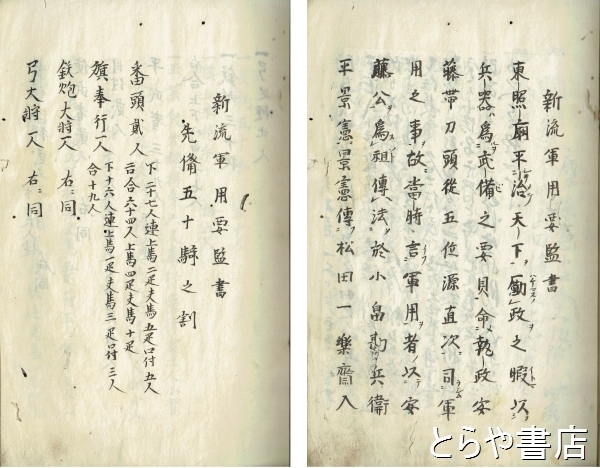 新流軍用要監書
東照廟平治天下勵政之暇以
兵器為武備之要具命執政安
藤帯刀頭従五位源直次司軍
用之事故當時言軍用者以安
藤公為祖傳法於小畠勘兵衛
平景憲景憲傳松田一樂齋入
新流軍用要監書
先備五十騎之割
番頭貳人
下二十七人連上馬二疋夫馬五疋口付五人
二口合六十四人上馬四疋夫馬十疋
旗奉行一人
下十六人連上馬一疋夫馬三疋口付三人
合十九人
鉄炮大将一人 右ニ同
弓大将一人 右ニ同
とらや書店